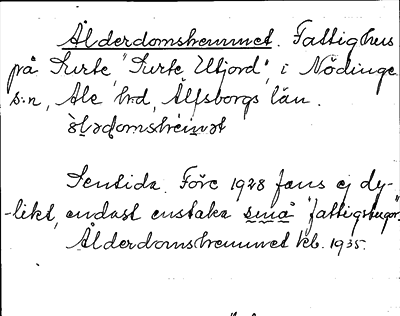 Ålderdomshemmet. Fattighus
på Surte, "Surte Utjord", i Nödinge
s:n, Ale hrd, Älfsborgs län.
Sentida. Före 1928 fans ej dy-
-likt, endast enstaka små "fattigstugor".
Ålderdomshemmet kb. 1935.